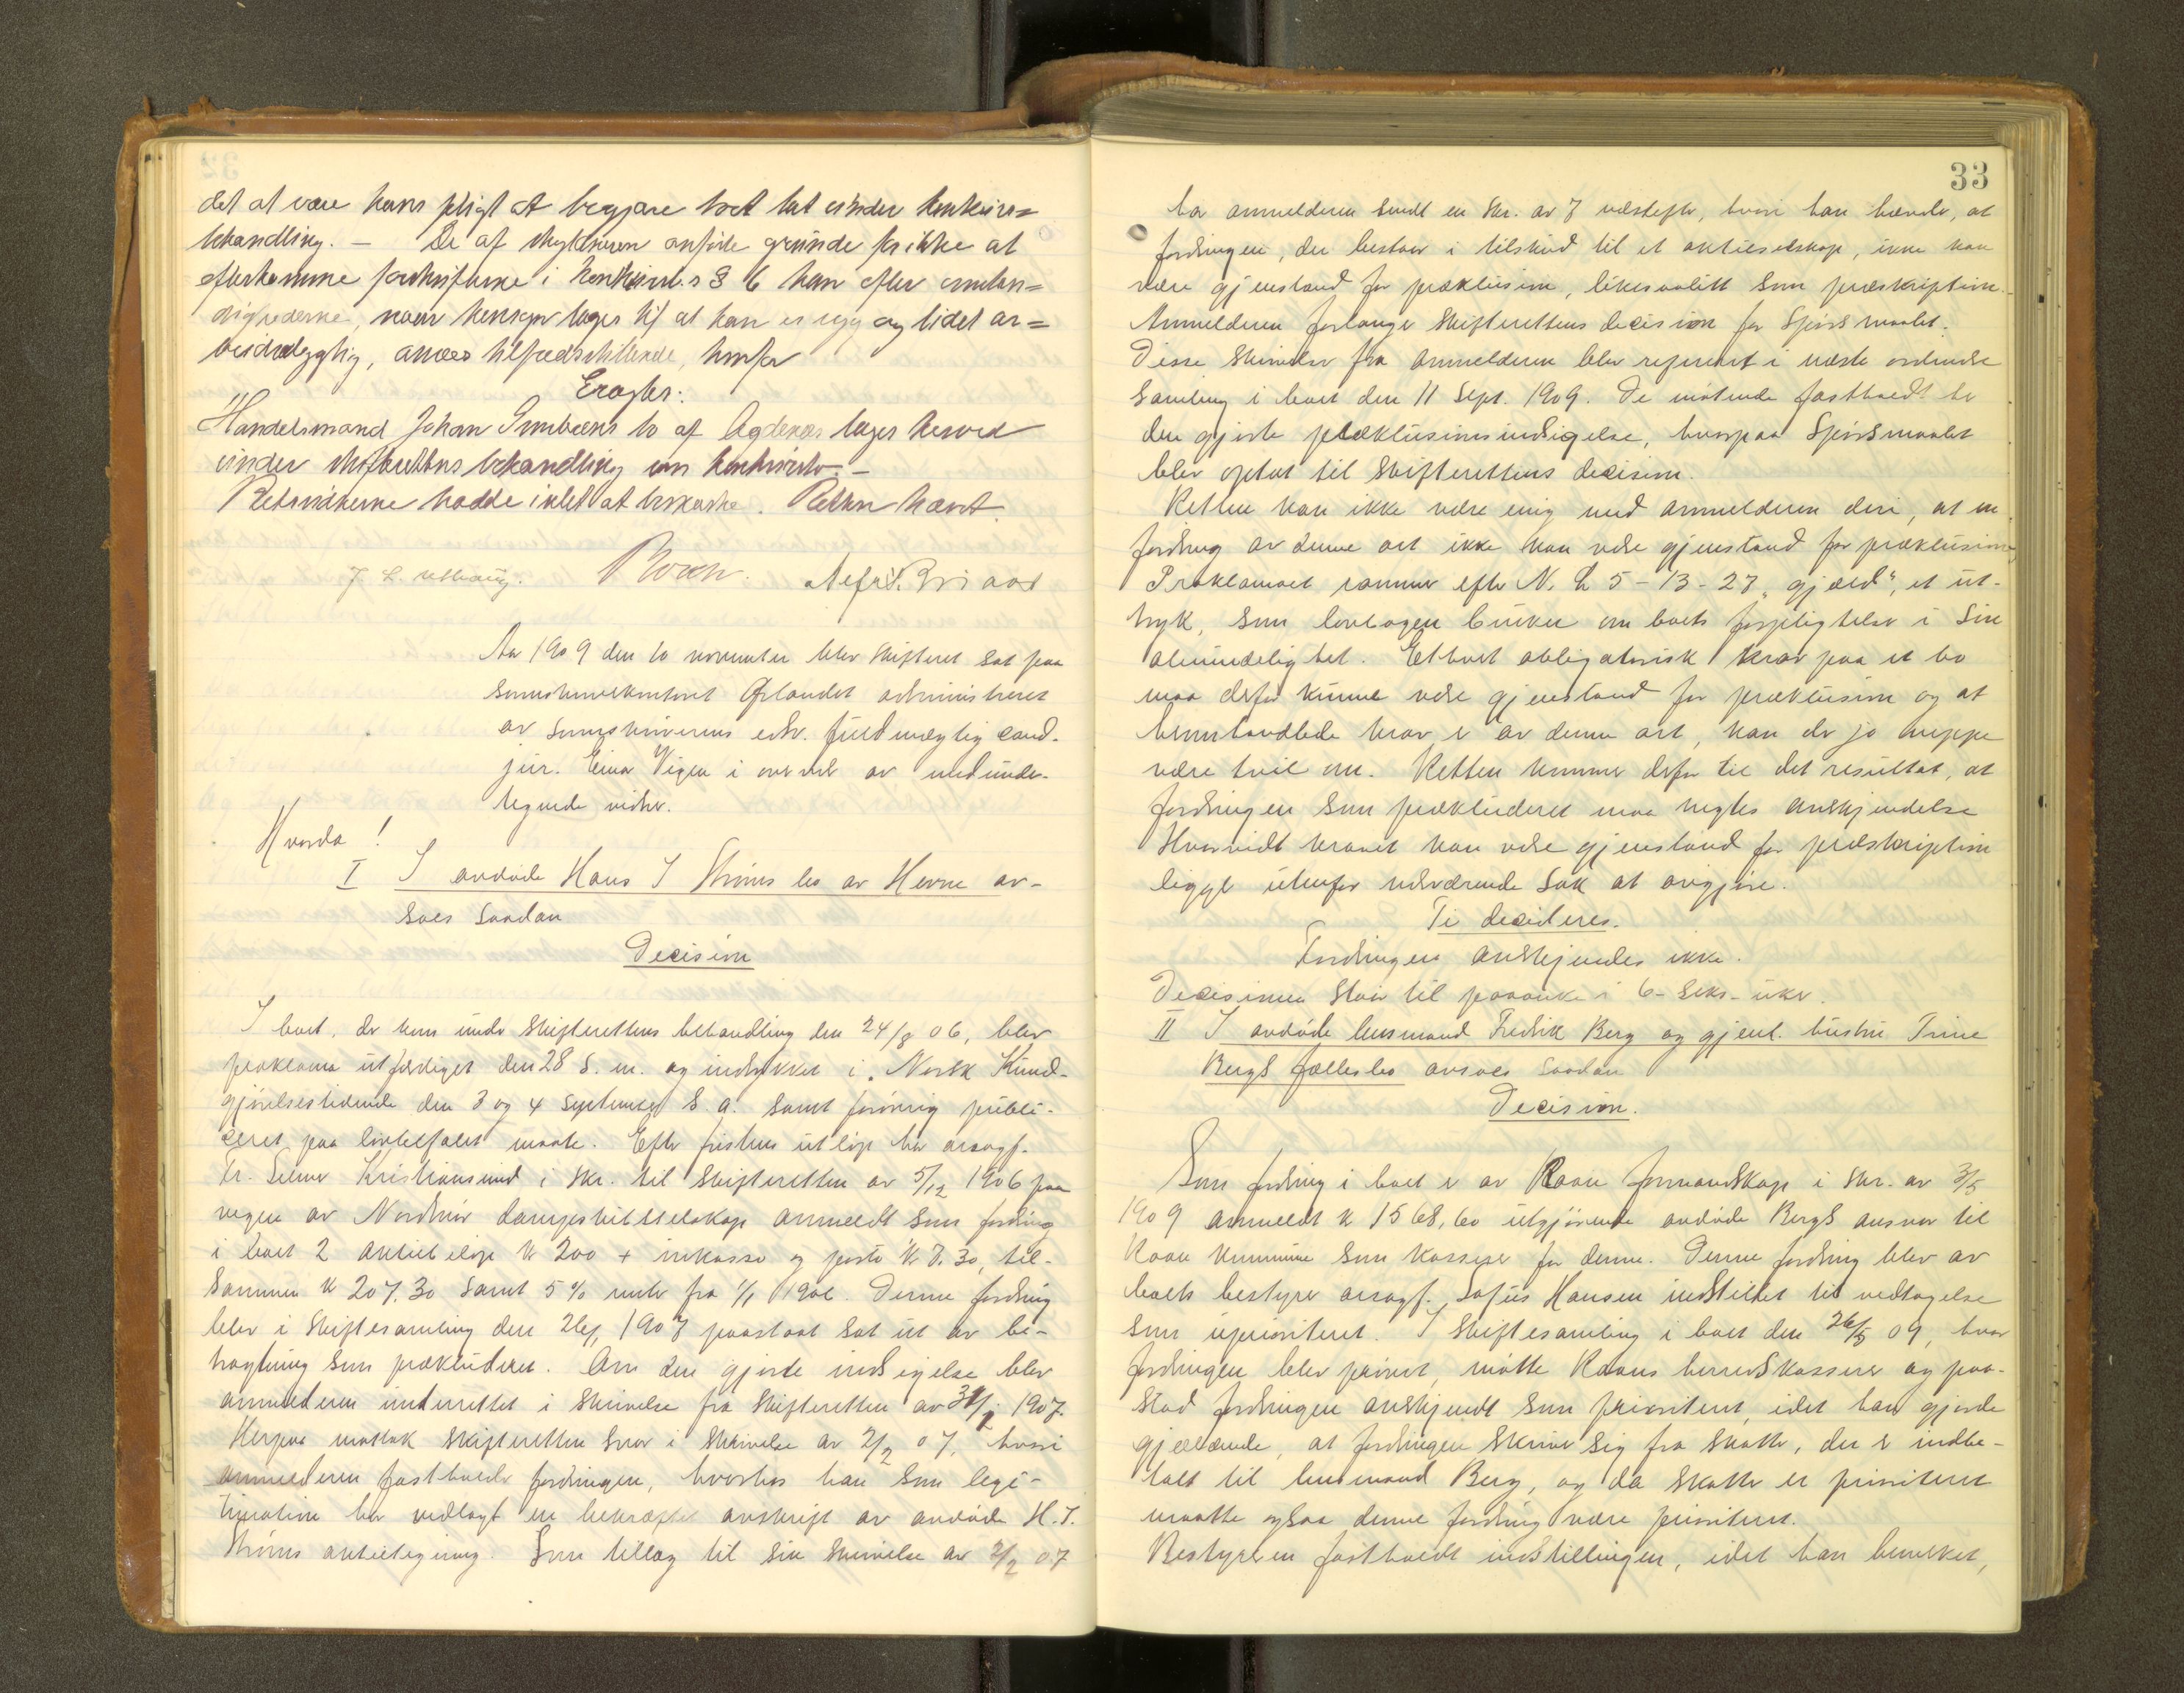 det at være hans pligt at begjære boet tat under konkurs=
behandling. – De af skyldneren anførte grunde for ikke at
efterkomme forskrifterne i konkursl.s § 6 kan efter omstæn=
dighederne, naar hensyn tages til at han er syg og lidet ar=
beidsdygtig, ansees tilfredsstillende, hvorfor
Eragtes:
Handelsmand Johan bo af Agdenes tages herved
under skifterettens behandling som konkursbo. –
Retsvidnerne hadde intet at bemerke. Retten hævet.
Aar 1909 den 10 november blev skifteret sat paa
sorenskriverkontoret Ørlandet administreret
av sorenskriverens edsv. fuldmægtig cand.
jur. Einar Vigen i overvær av medunder-
tegnede vidner.
Hvorda!
I I avdøde Hans J Strøms bo av Hevne av-
saes saadan
Decision
I boet, der kom under skifterettens behandling den 24/8 06, blev
proklama utfærdiget den 28 s. m. og indrykket i "Norsk Kund-
gjørelsestidende den 3 og 4 september s. a. samt forøvrig publi-
ceret paa lovbefalet maate. Efter fristens utløp har orsagf.
Fr. Selmer Kristiansund i skr. til skifteretten av 5/12 1906 paa
vegne av Nordmør dampskibsselskap anmeldt som fordring
i boet 2 aktiebeløp kr 200 + inkasso og porto kr 7.30, til-
sammen kr 207.30 samt 5 % renter fra 1/1 1906. Denne fordring
blev i skiftesamling den 1907 paastaat sat ut av be-
tragtning som prækluderet. Om den gjorte indsigelse blev
anmelderen underrettet i skrivelse fra skifteretten av 31/1 1907.
Herpaa mottok skifteretten svar i skrivelse av 2/2 07, hvori
anmelderen fastholder fordringen, hvorhos han som legi-
timation har vedlagt en bekræftet avskrift av avdøde H. J.
Strøms aktietegning. Som tillæg til sin skrivelse av 2/2 07
33
har anmelderen sendt en skr. av 7 næstefter, hvori han hævder, at
fordringen, der bestaar i tilskud til et aktieselskap, ikke kan
være gjenstand for præklusion, likesaalitt som præskription.
Anmelderen forlanger skifterettens decision for spørsmaalet.
Disse skrivelser fra anmelderen blev refereret i næste ordinære
samling i boet den 11 Sept. 1909. De møtende fastholdt der
den gjorte præklusionsindsigelse, hvorpaa spørsmaalet
blev optat til skifterettens decision.
Retten kan ikke være enig med anmelderen deri, at en
fordring av denne art ikke kan være gjenstand for præklusion
Proklamaet rammer efter N. L 5-13-27 "gjæld", et ut-
tryk, som lovbogen bruker om boets forpligtelser i sin
almindelighet. Ethvert obligatorisk krav paa et bo
maa derfor kunne være gjenstand for præklusion og at
omhandlede krav er av denne art, kan der jo neppe
være tvil om. Retten kommer derfor til det resultat, at
fordringen som prækluderet maa negtes anerkjendelse
Hvorvidt kravet kan være gjenstand for præskription
ligger utenfor nærværende sak at avgjøre.
Ti decideres.
Fordringen anerkjendes ikke.
Decisionen staar til paaanke i 6-seks-uker.
II I avdøde lensmand Fredrik Berg og gjenl. hustru Trine
Bergs fællesbo avsaes saadan
Decision.
Som fordring i boet er av Roan formandskap i skr. av 3/5
1909 anmeldt kr 1568,60 utgjørende avdøde Bergs ansvar til
Roan kommune som kasserer for denne. Denne fordring blev av
boets bestyrer orsagf. Sofus Hansen indstillet til vedtagelse
som uprioriteret. I skiftesamling i boet den 26/5 09, hvor
fordringen blev prøvet, møtte Roans herredskasserer og paa-
stod fordringen anerkjendt som prioriteret, idet han gjorde
gjældende, at fordringen skriver sig fra skatter, der er indbe-
talt til lensmand Berg, og da skatter er prioriteret
maatte ogsaa denne fordring være prioriteret.
Bestyreren fastholdt indstillingen, idet han bemerket,